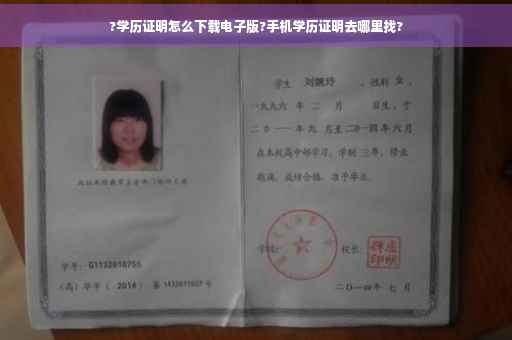 ?学历证明怎么下载电子版?手机学历证明去哪里找?
学生 刘婉玲 ，性别 女 ，
一九九六 年 二 月 日生，于
二０一一 年 九 月至 二０一四 年 六 月
在本校高中部学习，学制 三年，修业
期满，成绩合格，准予毕业。
学校： 校长：
学号： G1132010755
(高) 毕字 ( 2014 ) 第 1432011027 号
二〇一四年 七 月